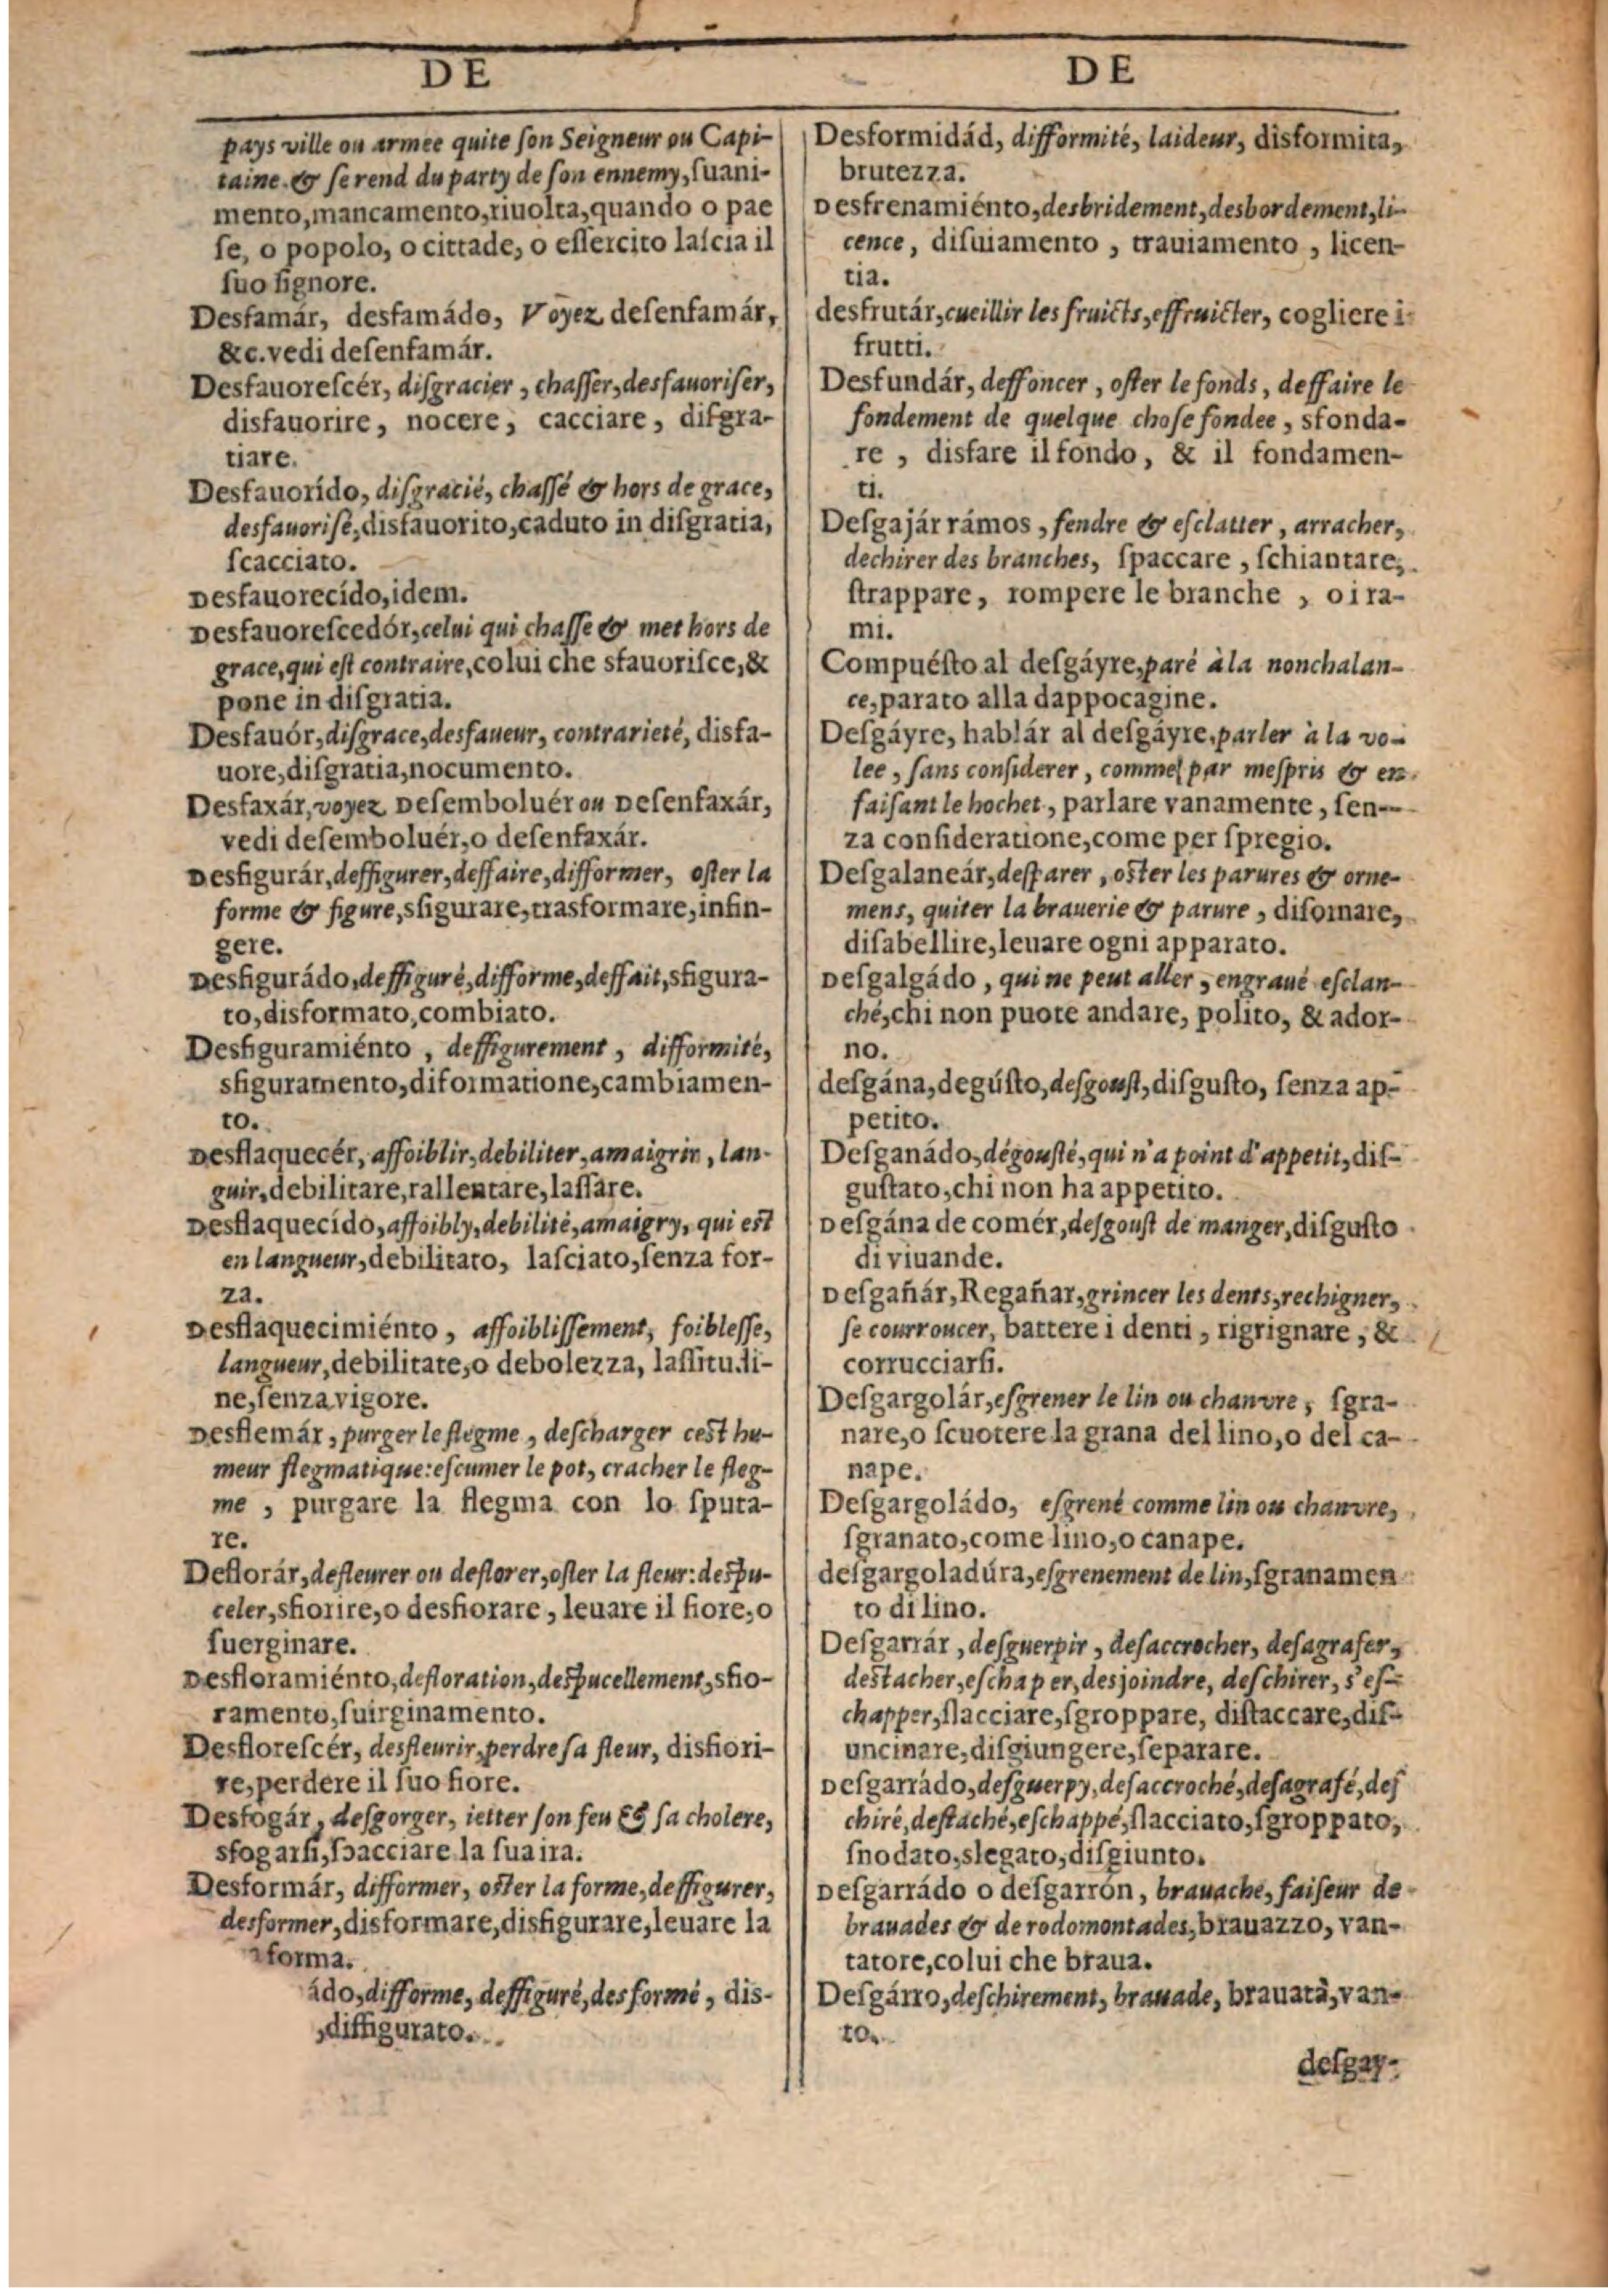 DE
pays ville ou armee quite ſon Seigneur ou Capi-
taine & ſe rend du party de ſon ennemy, ſuani-
mento, mancamento, riuolta, quando o pae
ſe, o popolo, o cittade, o eſſercito laſcia il
ſuo ſignore.
Desfamár, desfamádo, Voyez deſenfamár,
&c. vedi deſenfamár.
Desfauoreſcér, diſgracier, chaſſer, desfauoriſer,
disfauorire, nocere, cacciare, diſgra-
tiare.
Desfauorído, diſgracié, chaſſé & hors de grace,
desfauoriſé, disfauorito, caduto in diſgratia,
ſcacciato.
Desfauorecído, idem.
Desfauoreſcedór, celui qui chaſſe & met hors de
grace, qui eſt contraire, colui che sfauoriſce, &
pone in diſgratia.
Desfauór, diſgrace, desfaueur, contrarieté, disfa-
uore, diſgratia, nocumento.
Desfaxár, voyez Deſemboluér ou Deſenfaxár,
vedi deſemboluér, o deſenfaxár.
Desfigurár, deffigurer, deffaire, difformer, oſter la
forme & figure, sfigurare, trasformare, infin-
gere.
Desfigurádo, deffiguré, difforme, deffait, sfigura-
to, disformato, combiato.
Desfiguramiénto, deffigurement, difformité,
sfiguramento, diformatione, cambiamen-
to.
Desflaquecér, affoiblir, debiliter, amaigrir, lan-
guir, debilitare, rallentare, laſſare.
Desflaquecído, affoibly, debilité, amaigry, qui eſt
en langueur, debilitato, laſciato, ſenza for-
za.
Desflaquecimiénto, affoibliſſement, foibleſſe,
langueur, debilitate, o debolezza, laſſitudi-
ne, ſenza vigore.
Desflemár, purger le flegme, deſcharger ceſt hu-
meur flegmatique: eſcumer le pot, cracher le fleg-
me, purgare la flegma con lo ſputa-
re.
Deflorár, defleurer ou deflorer, oſter la fleur: deſpu-
celer, sfiorire, o desfiorare, leuare il fiore, o
ſuerginare.
Desfloramiénto, defloration, deſpucellement, sfio-
ramento, ſuirginamento.
Desfloreſcér, desfleurir, perdre ſa fleur, disfiori-
re, perdere il ſuo fiore.
Desfogár, deſgorger, ietter ſon feu & ſa cholere,
sfogarſi, ſcacciare la ſua ira.
Desformár, difformer, oſter la forme, deffigurer,
desformer, disformare, disfigurare, leuare la
forma.
ádo, difforme, deffiguré, desformé, dis-
, diffigurato.
DE
Desformidád, difformité, laideur, disformita,
brutezza.
Desfrenamiénto, desbridement, desbordement, li-
cence, diſuiamento, trauiamento, licen-
tia.
desfrutár, cueillir les fruicts, effruicter, cogliere i
frutti.
Desfundár, deffoncer, oſter le fonds, deffaire le
fondement de quelque choſe fondee, sfonda-
re, disfare il fondo, & il fondamen-
ti.
Deſgajár rámos, fendre & eſclatter, arracher,
dechirer des branches, ſpaccare, ſchiantare,
ſtrappare, rompere le branche, o i ra-
mi.
Compuéſto al deſgáyre, paré à la nonchalan-
ce, parato alla dappocagine.
Deſgáyre, hablár al deſgáyre, parler à la vo-
lee, ſans conſiderer, comme par meſpris & en
faiſant le hochet, parlare vanamente, ſen-
za conſideratione, come per ſpregio.
Deſgalaneár, deſparer, oſter les parures & orne-
mens, quiter la brauerie & parure, diſornare,
diſabellire, leuare ogni apparato.
Deſgalgádo, qui ne peut aller, engraué eſclan-
ché, chi non puote andare, polito, & ador-
no.
deſgána, degúſto, deſgouſt, diſguſto, ſenza ap-
petito.
Deſganádo, dégouſté, qui n'a point d'appetit, diſ-
guſtato, chi non ha appetito.
Deſgána de comér, deſgouſt de manger, diſguſto
di viuande.
Deſgañár, Regañar, grincer les dents, rechigner,
ſe courroucer, battere i denti, rigrignare, &
corrucciarſi.
Deſgargolár, eſgrener le lin ou chanvre, ſgra-
nare, o ſcuotere la grana del lino, o del ca-
nape.
Deſgargoládo, eſgrené comme lin ou chanvre,
ſgranato, come lino, o canape.
deſgargoladúra, eſgrenement de lin, ſgranamen
to di lino.
Deſgarrár, deſguerpir, deſaccrocher, deſagrafer,
deſtacher, eſchaper, desjoindre, deſchirer, s'eſ-
chapper, ſlacciare, ſgroppare, diſtaccare, diſ-
uncinare, diſgiungere, ſeparare.
Deſgarrádo, deſguerpy, deſaccroché, deſagrafé, deſ
chiré, deſtaché, eſchappé, ſlacciato, ſgroppato,
ſnodato, slegato, diſgiunto.
Deſgarrádo o deſgarrón, brauache, faiſeur de
brauades & de rodomontades, brauazzo, van-
tatore, colui che braua.
Deſgárro, deſchirement, brauade, brauata, van-
to.
deſgay-